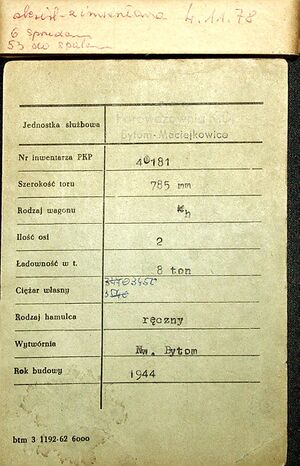 4.11.78
6 sprzedano
53 do spalenia
Jednostka służbowa Parowozownia K.D.
Bytom-Maciejkowice
Nr inwentarza PKP 4 181
Szerokość toru 785 mm
Rodzaj wagonu Kh
Ilość osi 2
Ładowność w t. 8 ton
Ciężar własny
Rodzaj hamulca ręczny
Wytwórnia Nw. Bytom
Rok budowy 1944
btm 3 1192-62 6000